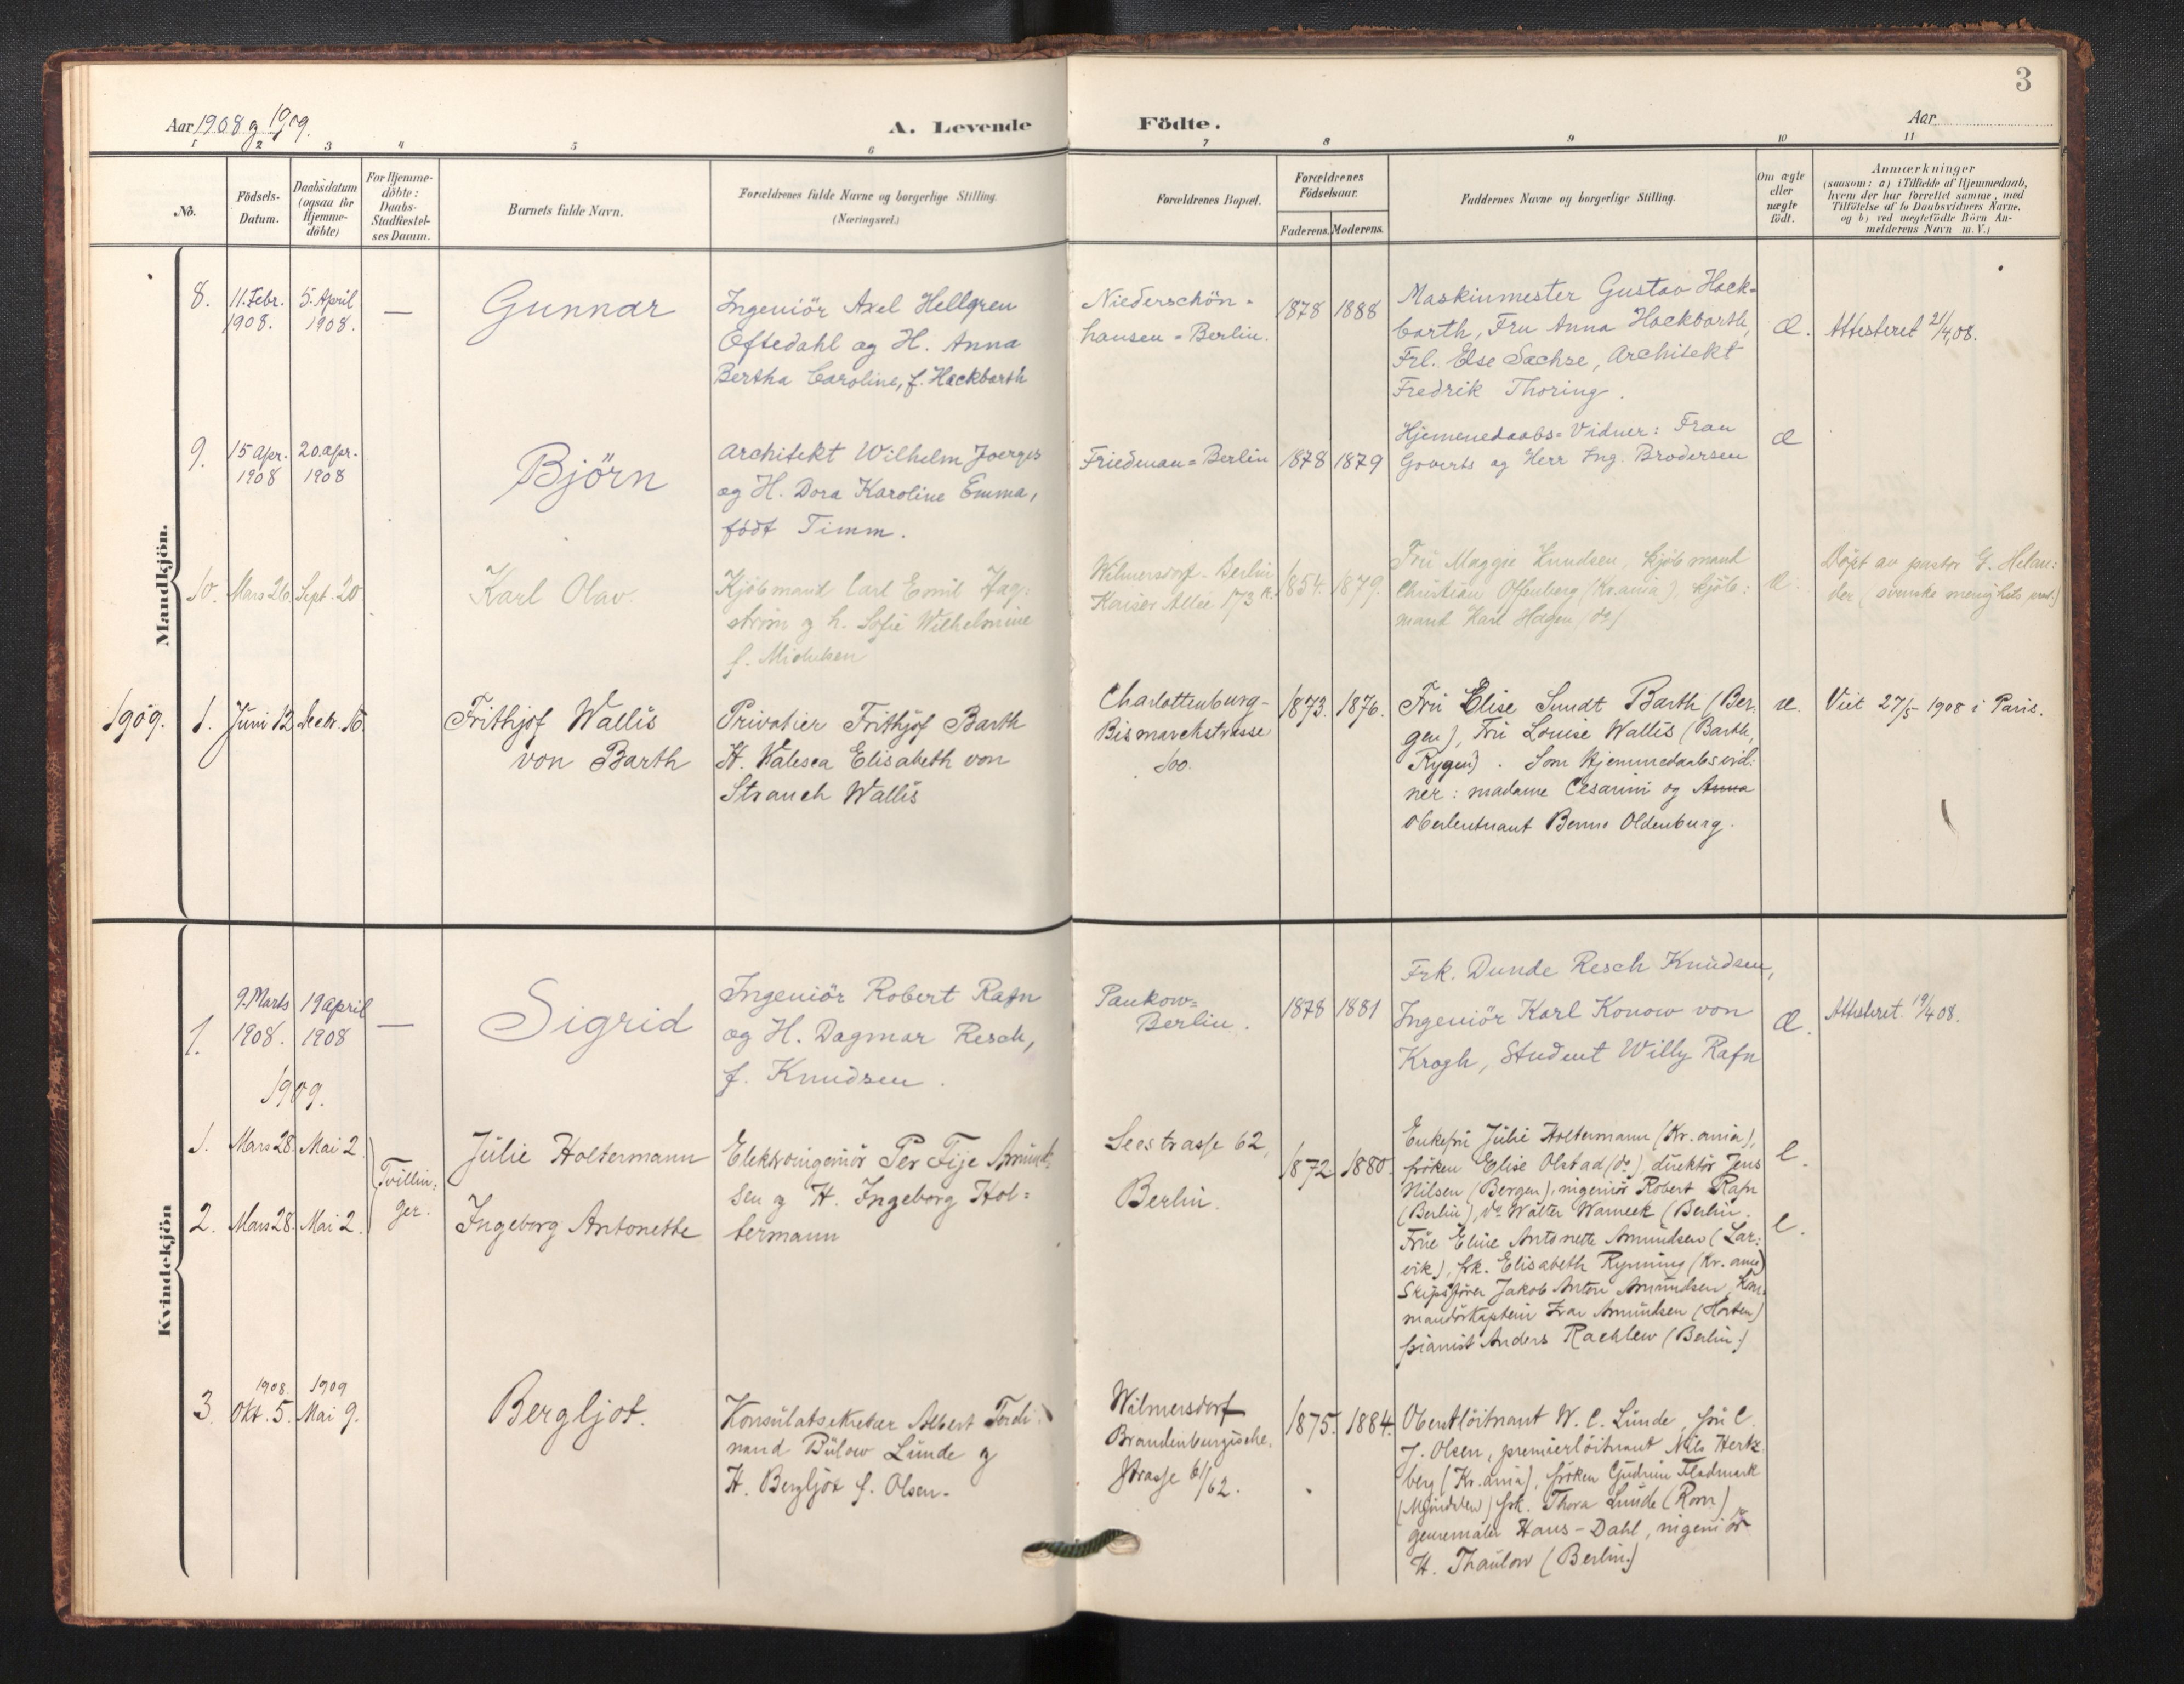 3
Aar 1908 og 1909.
A. Levende Födte.
Aar
1 2 3 4 5 6 7 8 9 10 11
No.
Födsels-
Datum.
Daabsdatum
(ogsaa for
Hjemme-
döbte)
For Hjemme-
döbte:
Daabs-
Stadfæstel-
ses Datum.
Barnets fulde Navn.
Forældrenes fulde Navne og borgerlige Stilling.
(Næringsvei.)
Forældrenes Bopæl.
Forældrenes
Födselsaar.
Faderens. Moderens.
Faddernes Navne og borgerlige Stilling.
Om ægte
eller
uægte
født.
Anmærkninger
(saasom: a) i Tilfælde af Hjemmedaab,
hvem der har forrettet samme, med
Tilföielse af to Daabsvidners Navne.
og b) ved uægtefödte Börn An-
melderens Navn m. V.)
Mandkjön.
8.
11. Febr.
1908.
5. April
1908.
—
Gunnar
Ingeniör Axel Hellgren
Oftedahl og H. Anna
Bertha Caroline, f. Hackbarth
Niederschön-
hausen - Berlin.
1878
1888
Maskinmester Gustav Hack-
barth, Fru Anna Hackbarth,
Frl. Else Sachse, Architekt
Fredrik Thoring.
Æ.
Attesteret 21/4,08.
9.
15 Apr.
1908
20. apr.
1908
Björn
Architekt Wilhelm Joerges
og H. Dora Karoline Emma,
född Timm.
Friedenau = Berlin
1878
1879
Hjemmedaabs-Vidner: Frau
Goverts og Herr Ing. Brodersen
Æ
10.
Mars 26
Sept. 20
Karl Olav.
Kjöbmand Carl Emil Hag:
ström og h. Sofie Wilhelmine
f. Michelsen
Wilmersdorf - Berlin
Kaiser Allee 173
1854.
1879.
Fru Maggie Knudsen, kjöbmand
Christian Offenberg (Kr.ania), kjöb:
mand Karl Hagen (do)
æ.
Döpt av pastor G. Helan:
der (svenske menighets
1909.
1.
Juni 12
Frithjof Wallis
von Barth
Privatier Frithjof Barth
H. Valesca Elisabeth von
Strauch Wallis
Charlottenburg-
Bismarckstrasse
100.
1873.
1876.
Fru Elise Sundt Barth (Ber.
gen), Fru Louise Wallis (Barth,
Rygen). Som Hjemmedaabsvid:
ner: madame Cesarini og Anna
Oberleutnant Benno Oldenburg.
æ.
Viet 27/5 - 1908 i Paris.
Kvindekjön
1.
9. Marts
1908.
19 april
1908
—
Sigrid
Ingeniör Robert Rafn
og H. Dagmar Resch,
f. Knudsen.
Pankow=
Berlin.
1878
1881
Frk. Dunde Resch Knudsen,
Ingeniör Karl Konow von
Krogh, Student Willy Rafn
Æ.
Attesteret 19/4 08.
1909.
1.
Mars 28
Mai 2.
Tvillin:
ger.
Julie Holtermann
Elektroingeniör Per Fije Amund:
sen og H. Ingeborg Hol=
termann
Seestrasse 62,
Berlin.
1872
1880.
2.
Mars 28
Mai 2.
Ingeborg Antonette
Enkefru Julie Holtermann (Kr.ania),
fröken Elise Olstad (do), direktör Jens
Nilsen (Bergen), ingeniör Robert Rafn
(Berlin), do Walter Warneck (Berlin.
Frue Elise Antonette Amundsen (Lar:
vik), frk. Elisabeth Rynning (Kr.ania)
Skipsförer Jakob Anton Amundsen, Kom
mandörkaptein Ivar Amundsen (Horten)
pianist Anders Rachlew (Berlin.)
3.
1908.
Okt. 5.
1909
Mai 9.
Bergljot.
Konsulatsekretær Albert Ferdi:
nand Bülow Lunde og
H. Bergljot f. Olsen.
Wilmersdorf
Brandenburgische.
Strasse 61/62.
1875.
1884.
Oberstlöitnant W. C. Lunde, fru C.
J. Olsen, premierlöitnant Nils Hertz
berg (Kr.ania), fröken Gudrun Fladmark
(Mjöndalen) frk. Thora Lunde (Rom)
genremaler Hans-Dahl, ingeniör
H. Thaulow (Berlin.)